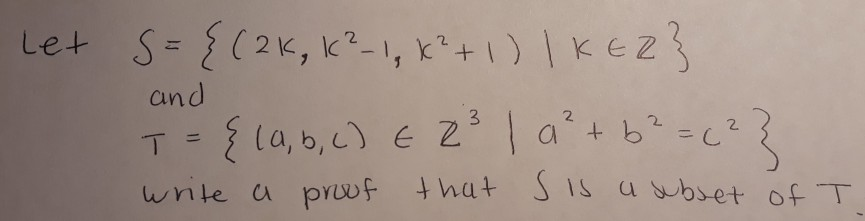 Let S = { (2k, k²-1, k²+1) | k ∈ Z }
and
T = { (a,b,c) ∈ Z³ | a² + b² = c² }
write a proof that S is a subset of T